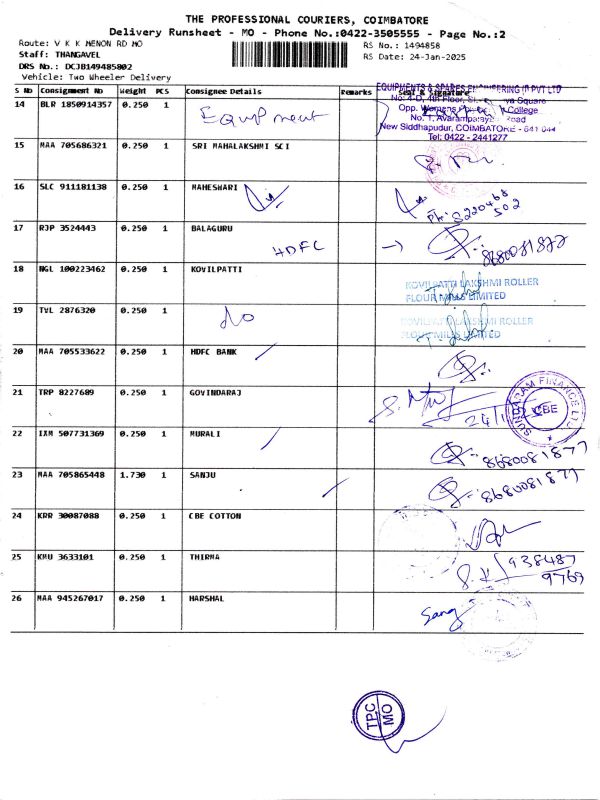 THE PROFESSIONAL COURIERS, COIMBATORE
Delivery Runsheet - MO - Phone No.:0422-3505555 - Page No.:2
Route: V K K MENON RD MO
RS No.: 1494858
Staff: THANGAVEL
RS Date: 24-Jan-2025
DRS No.: DCJB149485802
Vehicle: Two Wheeler Delivery
S No Consignment No Weight PCS Consignee Details Remarks Seal & Signature
14 BLR 1850914357 0.250 1 Equipment
EQUIPMENTS & SPARES ENGINEERING (I) PVT LTD
No: 4-D, 4th Floor, Square
Opp. Womens College
No. 1, Avarampalayam Road
New Siddhapudur, COIMBATORE - 641 044
Tel: 0422 - 2441277
15 MAA 705686321 0.250 1 SRI MAHALAKSHMI SCI
16 SLC 911181138 0.250 1 MAHESWARI
Ph: 8220468
502
17 RJP 3524443 0.250 1 BALAGURU
HDFC → 8680081877
18 NGL 100223462 0.250 1 KOVILPATTI
KOVILPATTI LAKSHMI ROLLER
FLOUR MILLS LIMITED
19 TVL 2876320 0.250 1 do
KOVILPATTI LAKSHMI ROLLER
FLOUR MILLS LIMITED
20 MAA 705533622 0.250 1 HDFC BANK
21 TRP 8227689 0.250 1 GOVINDARAJ
SUNDARAM FINANCE LTD.
CBE
22 IXM 507731369 0.250 1 MURALI
8680081877
23 MAA 705865448 1.730 1 SANJU
8680081877
24 KRR 30087088 0.250 1 CBE COTTON
25 KMU 3633101 0.250 1 THIRMA
938487
9769
26 MAA 945267017 0.250 1 HARSHAL
Sang
TPC
MO